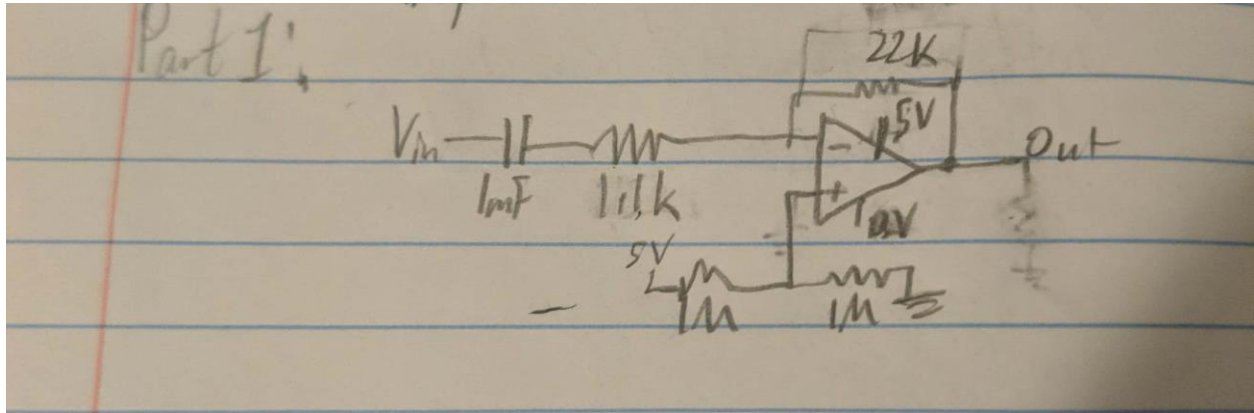 Part 1:
22K
5V
Vin
- 
Out
1mF
1.1k
+
0V
5V
1M
1M